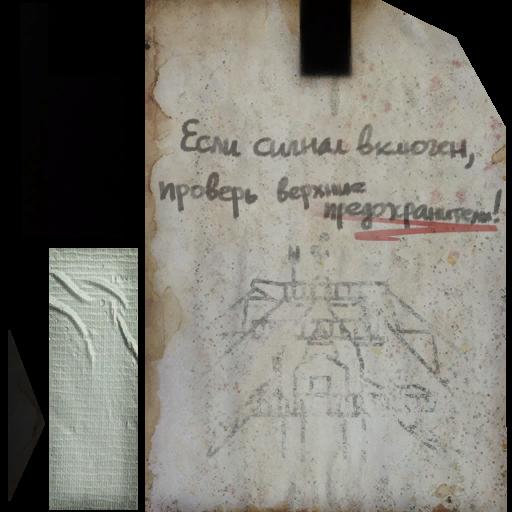 Если сигнал включен,
проверь верхние
предохранители!